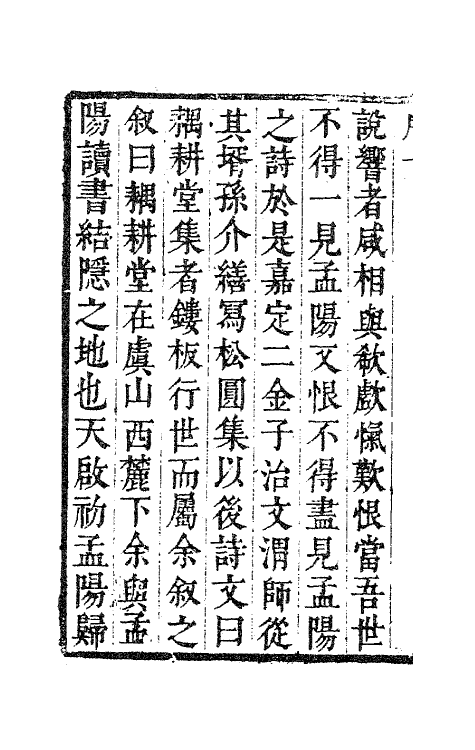 說響者咸相與欷歔愾歎恨當吾世
不得一見孟陽又恨不得盡見孟陽
之詩於是嘉定二金子治文渭師從
其壻孫介繕寫松圓集以後詩文曰
耦耕堂集者鏤板行世而屬余叙之
叙曰耦耕堂在虞山西麓下余與孟
陽讀書結隱之地也天啟初孟陽歸